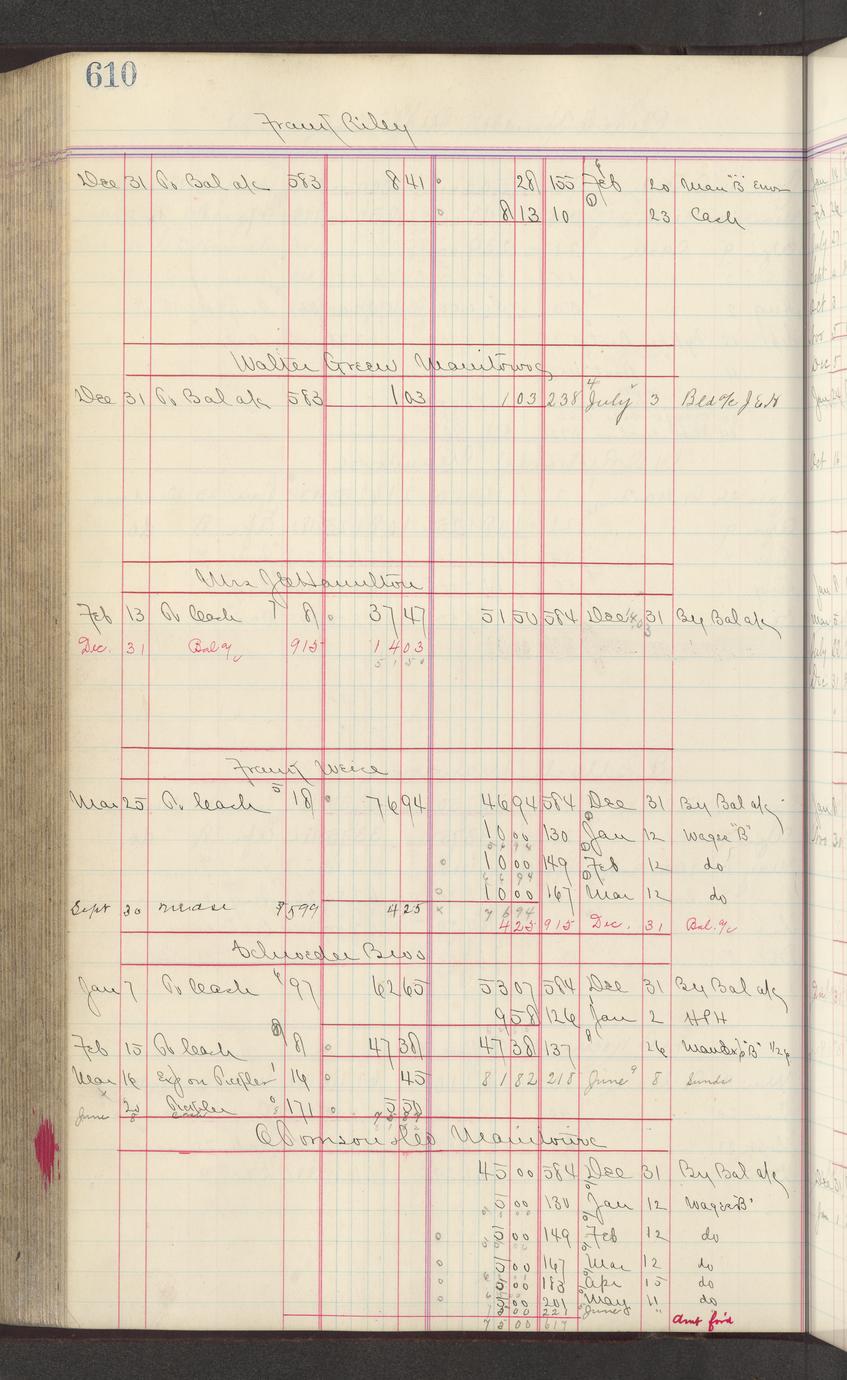 610
Frank Riley
Dec 31 To Bal a/c 583 8 41 28 155 Feb 20 Man "B" Error
8 13 10 23 Cash
Walter Green Manitowoc
Dec 31 To Bal a/c 583 1 03 1 03 238 July 3 Bld a/c J E H
Mrs J E Hamilton
Feb 13 To Cash 8 37 47 51 50 584 Dec 31 By Bal a/c
Dec. 31 Bal a/c 915 14 03
51 50
Frank Weice
Mar 25 To Cash 18 76 94 46 94 584 Dec 31 By Bal a/c
10 00 130 Jan 12 Wages "B"
56 94
10 00 149 Feb 12 do
66 94
10 00 167 Mar 12 do
76 94
Sept 30 Mdse 599 4 25 4 25 915 Dec. 31 Bal. a/c
Schroeder Bros
Jan 7 To Cash 97 62 65 53 07 584 Dec 31 By Bal a/c
9 58 126 Jan 2 H P H
Feb 15 To Cash 8 47 38 47 38 137 26 Man Exp "B" 1/26
Mar 16 Exp on 16 45 81 82 218 June 8 Sunds
June 171
Manitowoc
45 00 584 Dec 31 By Bal a/c
5 00 130 Jan 12 Wages "B"
5 00 149 Feb 12 do
5 00 167 Mar 12 do
5 00 183 Apr 15 do
5 00 201 May 11 do
5 00 221 June "
75 00 617 Amt for'd